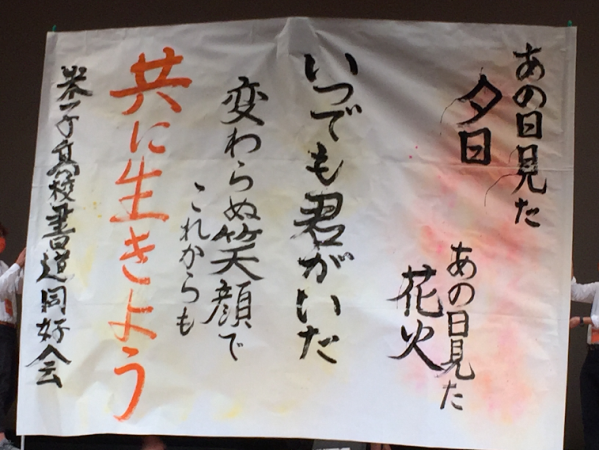 あの日見た
夕日
あの日見た
花火
いつでも君がいた
変わらぬ笑顔で
これからも
共に生きよう
米子高校書道同好会